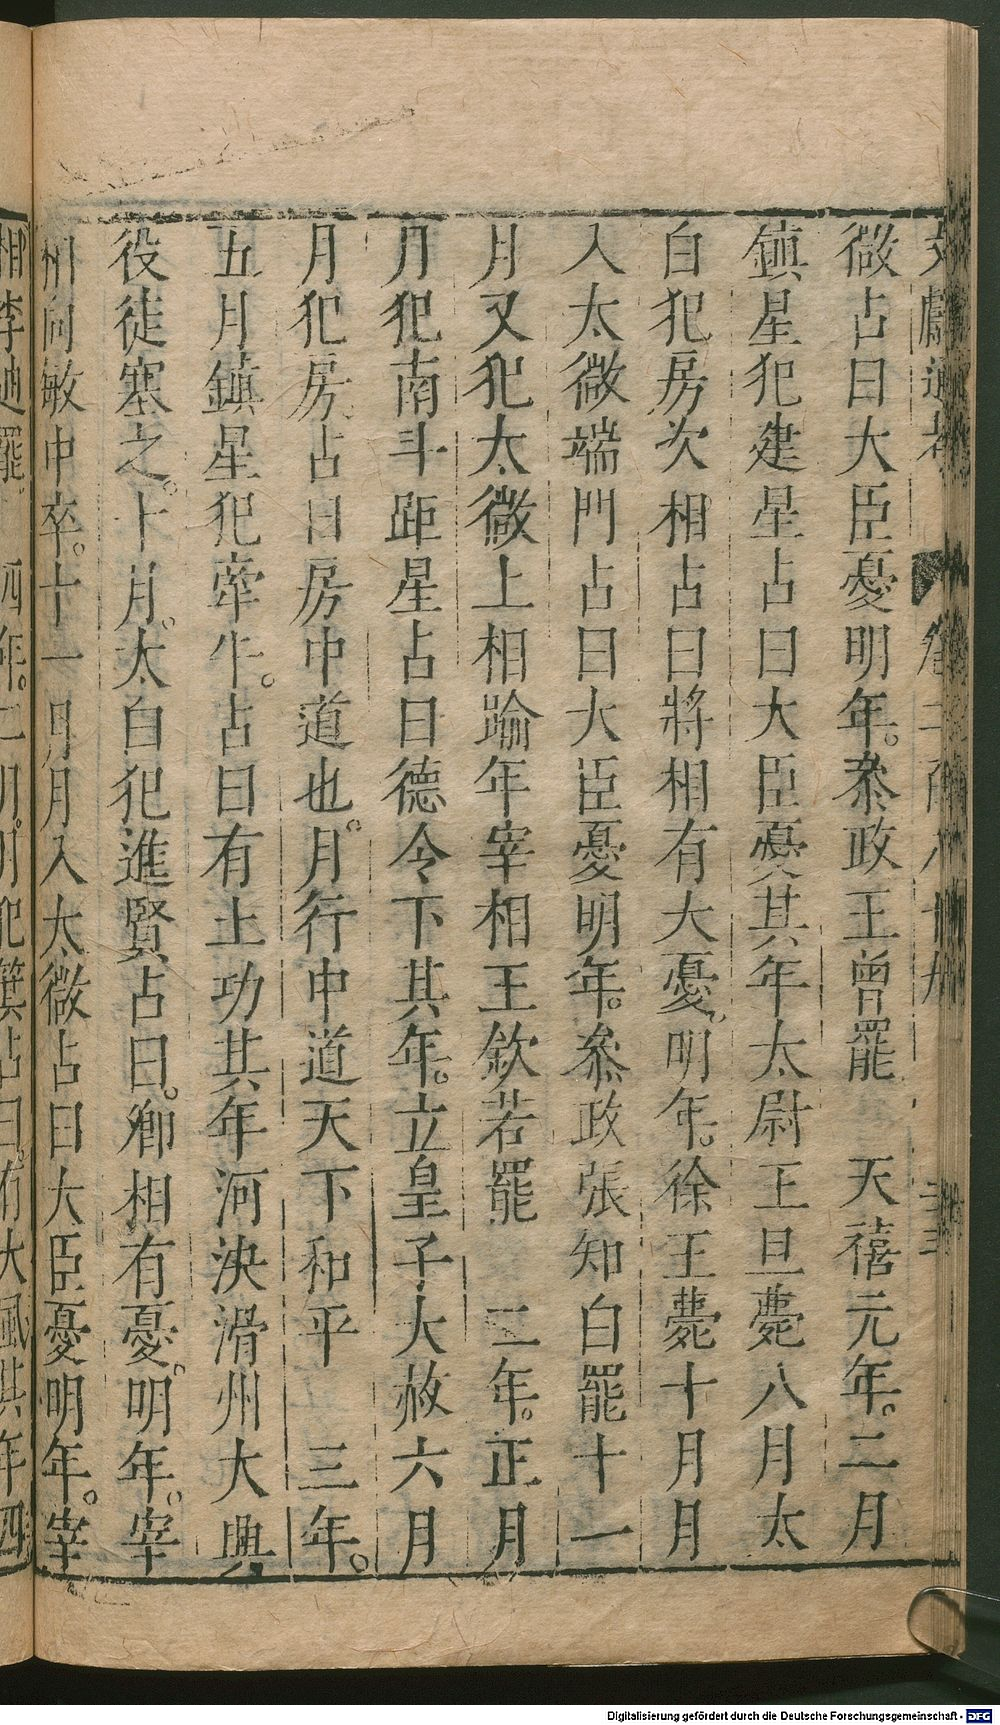 文獻通考 卷二百八十九
微占曰大臣憂明年。叅政王曾罷 天禧元年。二月
鎮星犯建星占曰大臣憂其年太尉王旦薨八月太
白犯房次相占曰將相有大憂明年。徐王薨十月月
入太微端門占曰大臣憂明年。叅政張知白罷十一
月又犯太微上相踰年宰相王欽若罷 二年。正月
月犯南斗距星占曰德令下其年。立皇子大赦六月
月犯房占曰房中道也。月行中道天下和平 三年。
五月鎮星犯牽牛。占曰有土功其年河決滑州大興
役徒塞之。十月。太白犯進賢占曰。卿相有憂。明年。宰
相向敏中卒。十一月月入太微占曰大臣憂明年。宰
相李迪罷 四年。二月。月犯箕占曰。有大風其年四
Digitalisierung gefördert durch die Deutsche Forschungsgemeinschaft - DFG